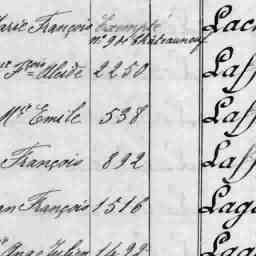 Marie François Exempté Lac
n° 94 Châteauneuf
Fçois Alcide 2250 Laff
Mie Emile 538 Laff
François 892 Laff
François 1516 Laga
Ange Julien 1499 Laga